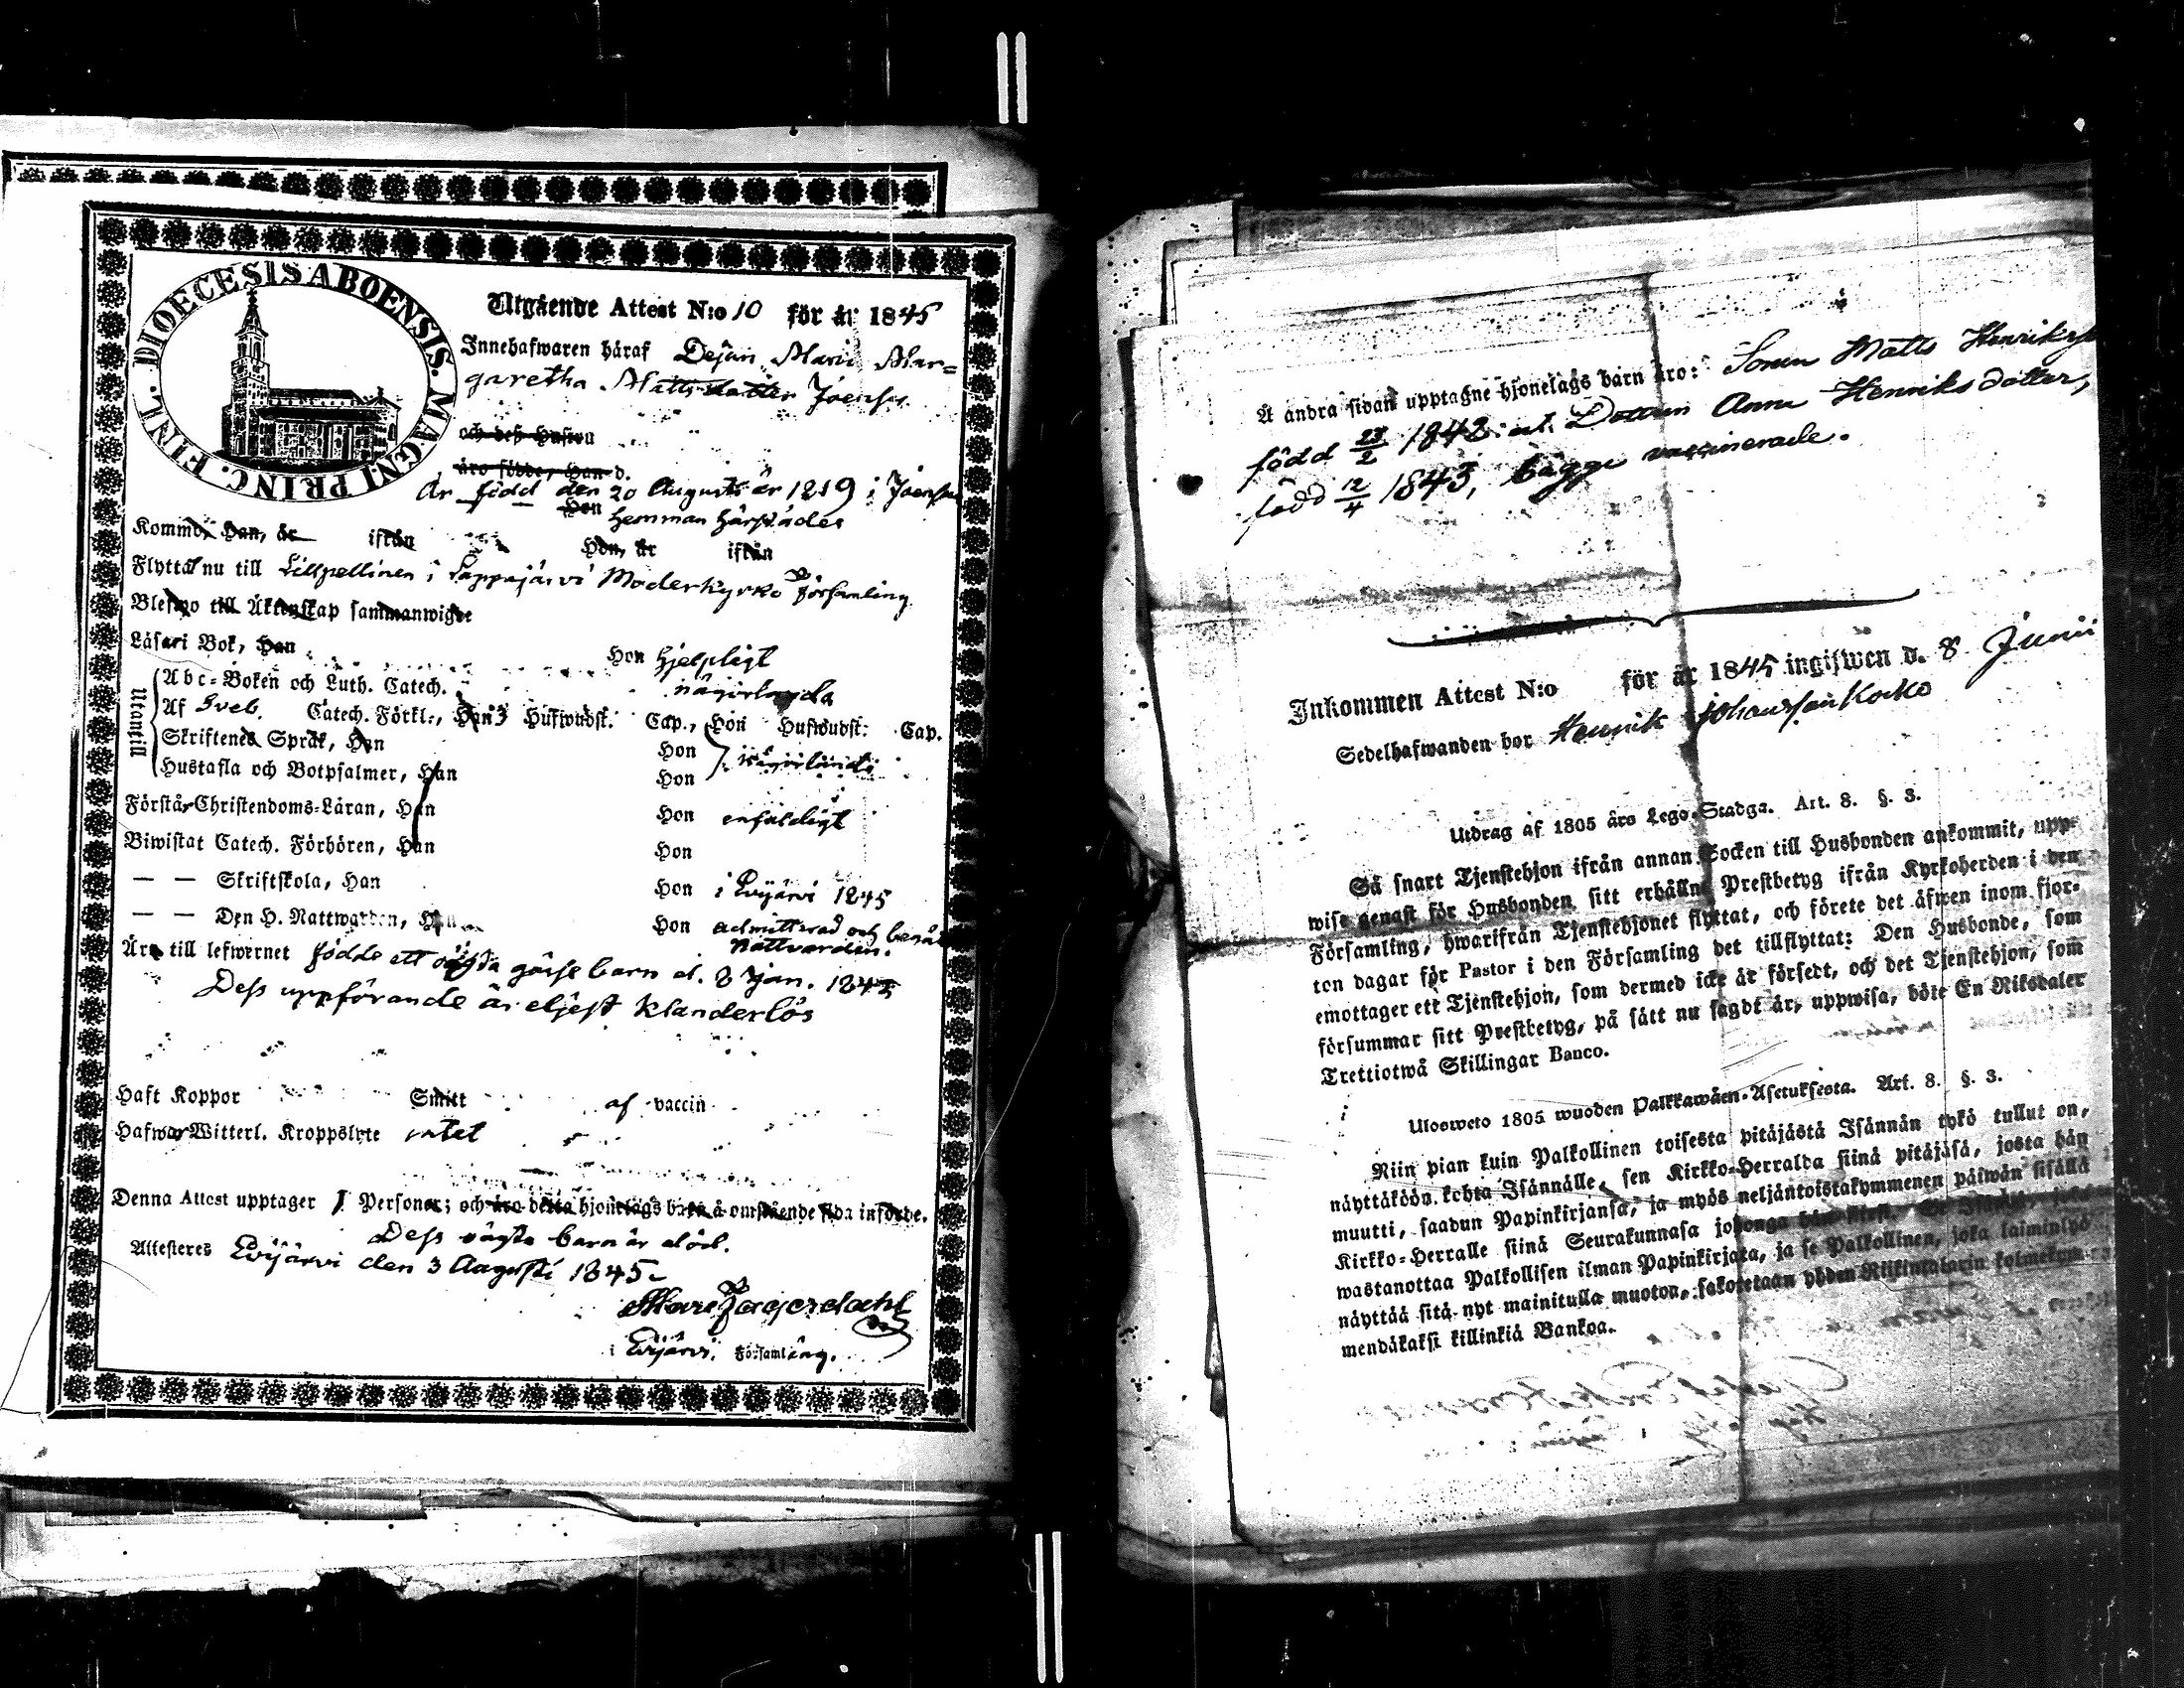 DIOECESIS ABOENSIS. MAGNI PRINC. FINL.
Utgående Attest N:o 10 för år 1845
Innehafwaren häraf Dejan Maria Mar=
garetha Mattsdotter Joensu
och deß Hustru
äro födde, Han d.
Är född den 20 Augusti år 1819 i Joensu
Hon hemman härstädes
Komm Han, år ifrån Hon, år ifrån
Flyttar nu till Lillpellinen i Lappajärvi Moderkyrko Församling
Blefwo till Äktenskap sammanwigde
Läsa i Bok, Han Hon hjelpligt
Utantill
Abc=Boken och Luth. Catech. någorlunda
Af Sveb. Catech. Förkl., Han 3 Hufwudst. Cap., Hon Hufwudst. Cap.
Skriftenes Språk, Han Hon någorlunda
Hustafla och Botpsalmer, Han Hon
Förstår Christendoms=Läran, Han Hon enfaldigt
Biwistat Catech. Förhören, Han Hon
— — Skriftskola, Han Hon i Evijärvi 1845
— — Den H. Nattwarden, Han Hon admitterad och
Nattvarden.
Äro till lefwernet födde ett oägta gåsse barn d. 8 Jan. 1845
Dess uppförande är eljest klanderlös
Haft Koppor Smitt af vaccin
Hafwa Witterl. Kroppslyte intet
Denna Attest upptager 1 Personer; och äro detta hjonelags barn å omstående sida införde.
Dess oägta barn är död.
Attesteres Evijärvi den 3 Augusti 1845
i Evijärvi Församling.
Å andra sidan upptagne hjonelags barn äro: Sonen Matts Henriks
född 28/2 1842 Dottren Anna Henriksdotter,
född 12/4 1843, bägge vaccinerade.
Inkommen Attest N:o för år 1845 ingifwen d. 8 Junii
Sedelhafwanden bor Henrik Johansson Kocko
Utdrag af 1805 års Lego=Stadga. Art. 8. §. 3.
Så snart Tjenstehjon ifrån annan Socken till Husbonden ankommit, upp=
wise genast för Husbonden sitt erhållne Prestbetyg ifrån Kyrkoherden i den
Församling, hwarifrån Tjenstehjonet flyttat, och förete det äfwen inom fjor=
ton dagar för Pastor i den Församling det tillflyttat: Den Husbonde, som
emottager ett Tjenstehjon, som dermed icke är försedt, och det Tjenstehjon, som
försummar sitt Prestbetyg, på sätt nu sagdt är, uppwisa, böte En Riksdaler
Trettiotwå Skillingar Banco.
Ulosweto 1805 wuoden Palkkawäen=Asetuksesta. Art. 8. §. 3.
Niin pian kuin Palkollinen toisesta pitäjästä Isännän tykö tullut on,
näyttäköön kohta Isännälle, sen Kirkko=Herralda siinä pitäjäsä, josta hän
muutti, saadun Papinkirjansa, ja myös neljäntoistakymmenen päiwän sisällä
Kirkko=Herralle siinä Seurakunnasa
wastanottaa Palkollisen ilman Papinkirjata, ja se Palkollinen, joka laiminlyö
näyttää sitä nyt mainitulla muoton, sakotetaan yhden Riikintalarin kolmekym=
mendäkaksi killinkiä Bankoa.